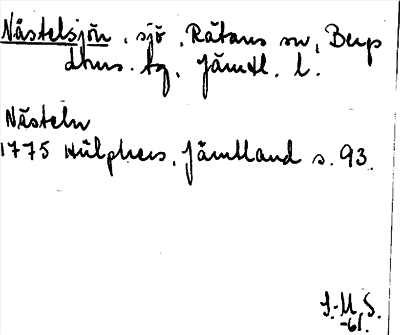 Nästelsjön, sjö, Rätans sn, Bergs
dms. tg, Jämtl. l.
Nästeln
1775 Hülphers, Jämtland s. 93.
S.-M. S.
-61.